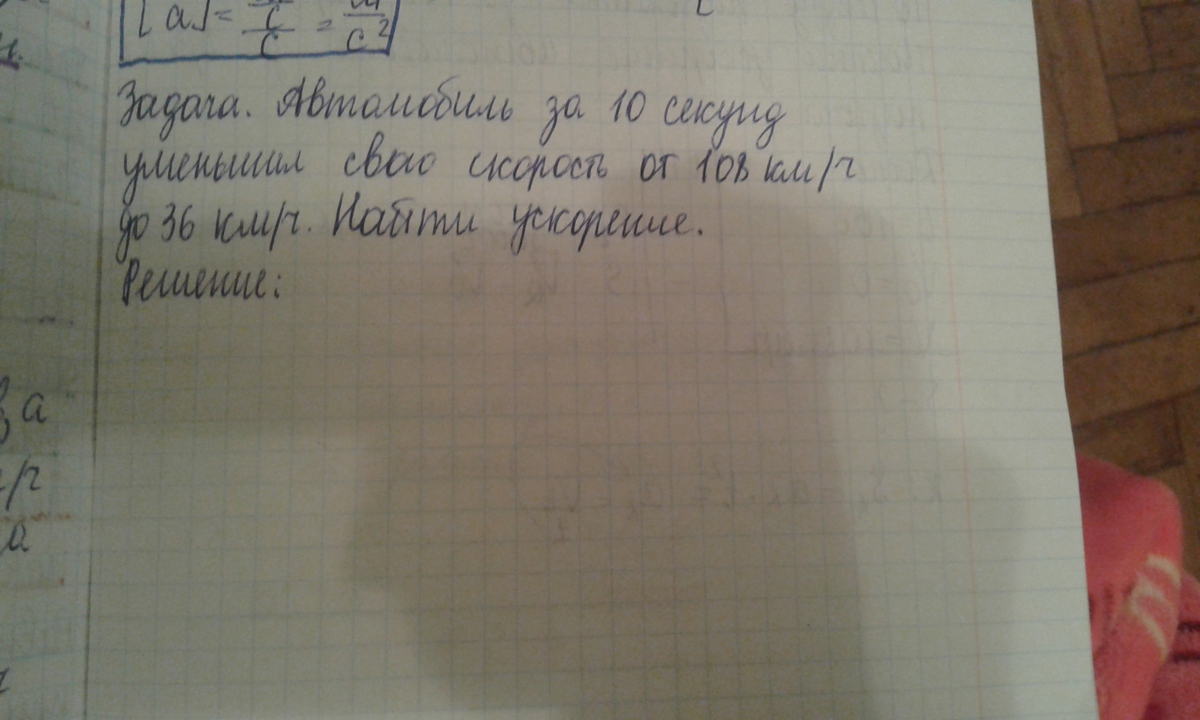 [a]= = м/с²
Задача. Автомобиль за 10 секунд
уменьшил свою скорость от 108 км/ч
до 36 км/ч. Найти ускорение.
Решение: